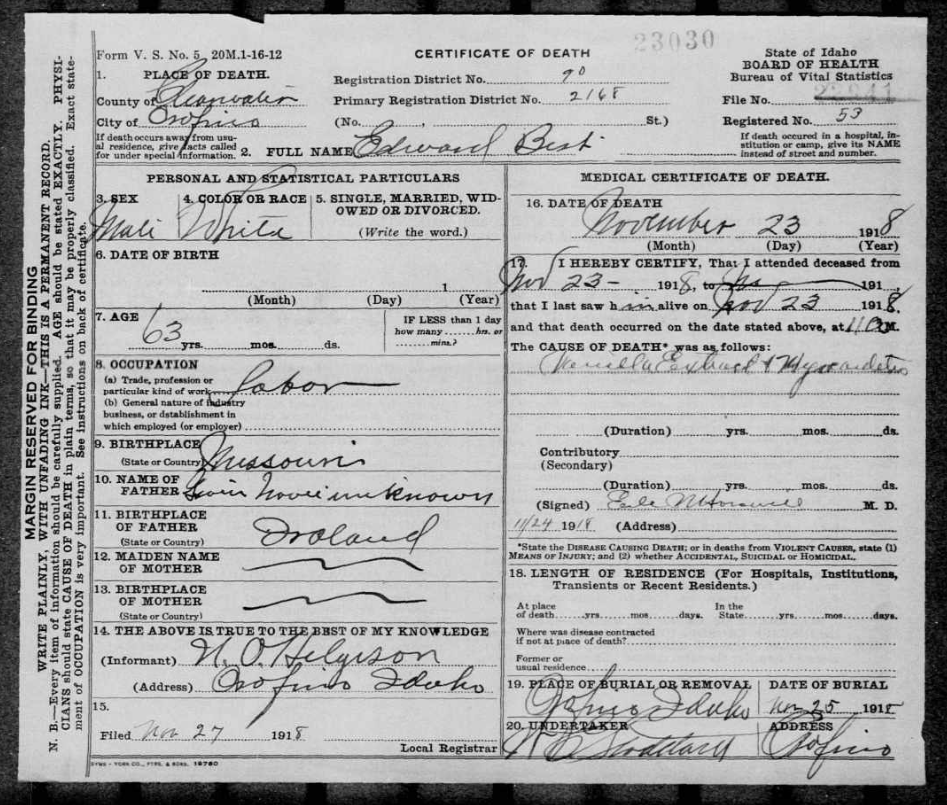 23030
Form V. S. No. 5 20M.1-16-12
CERTIFICATE OF DEATH
State of Idaho
BOARD OF HEALTH
Bureau of Vital Statistics
File No.
Registered No. 53
If death occured in a hospital, in-
stitution or camp, give its NAME
instead of street and number.
1. PLACE OF DEATH.
County of Clearwater
City of Orofino
If death occurs away from usu-
al residence, give facts called
for under special information.
Registration District No. 90
Primary Registration District No. 2168
(No. , St.)
2. FULL NAME Edward Best
PERSONAL AND STATISTICAL PARTICULARS
3. SEX
Male
4. COLOR OR RACE
White
5. SINGLE, MARRIED, WID-
OWED OR DIVORCED.
(Write the word.)
6. DATE OF BIRTH
1
(Month) (Day) (Year)
7. AGE
63 yrs. mos. ds.
IF LESS than 1 day
how many hrs. or
mins.?
8. OCCUPATION
(a) Trade, profession or
particular kind of work Labor
(b) General nature of industry
business, or dstablishment in
which employed (or employer)
9. BIRTHPLACE
(State or Country) Missouri
10. NAME OF
FATHER unknown
11. BIRTHPLACE
OF FATHER
(State or Country) Iroland
12. MAIDEN NAME
OF MOTHER
13. BIRTHPLACE
OF MOTHER
(State or Country)
14. THE ABOVE IS TRUE TO THE BEST OF MY KNOWLEDGE
(Informant) N. O. Helgeson
(Address) Orofino Idaho
15.
Filed Nov 27 1918
Local Registrar
SYMS - YORK CO., PTRS. & BNDS. 18760
MEDICAL CERTIFICATE OF DEATH.
16. DATE OF DEATH
November 23 1918
(Month) (Day) (Year)
17. I HEREBY CERTIFY, That I attended deceased from
Nov 23 - 1918, to 191
that I last saw him alive on Nov 23 1918.
and that death occurred on the date stated above, at M.
The CAUSE OF DEATH* was as follows:
Vanilla Extract & Myocarditis
(Duration) yrs. mos. ds.
Contributory
(Secondary)
(Duration) yrs. mos. ds.
(Signed) M. D.
11/24 1918 (Address)
*State the DISEASE CAUSING DEATH; or in deaths from VIOLENT CAUSES, state (1)
MEANS OF INJURY; and (2) whether ACCIDENTAL, SUICIDAL or HOMICIDAL.
18. LENGTH OF RESIDENCE (For Hospitals, Institutions,
Transients or Recent Residents.)
At place In the
of death yrs. mos. days. State yrs. mos. days.
Where was disease contracted
if not at place of death?
Former or
usual residence
19. PLACE OF BURIAL OR REMOVAL
Orofino Idaho
DATE OF BURIAL
Nov 25 1918
20. UNDERTAKER
ADDRESS
Orofino
MARGIN RESERVED FOR BINDING
WRITE PLAINLY, WITH UNFADING INK—THIS IS A PERMANENT RECORD.
N. B.—Every item of information should be carefully supplied. AGE should be stated EXACTLY. PHYSI-
CIANS should state CAUSE OF DEATH in plain terms, so that it may be properly classified. Exact state-
ment of OCCUPATION is very important. See instructions on back of certificate.